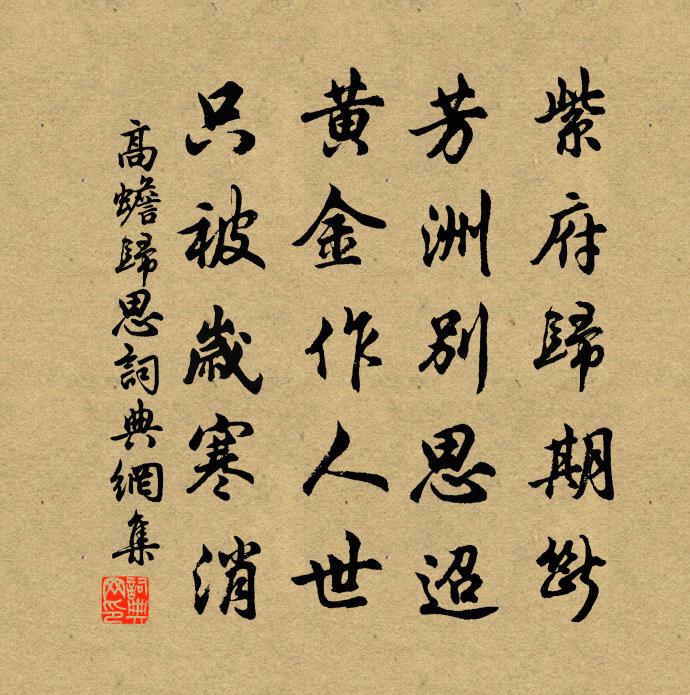 紫府歸期斷
芳洲別思迢
黃金作人世
只被歲寒消
高蟾歸思詞典網集
詞典網印